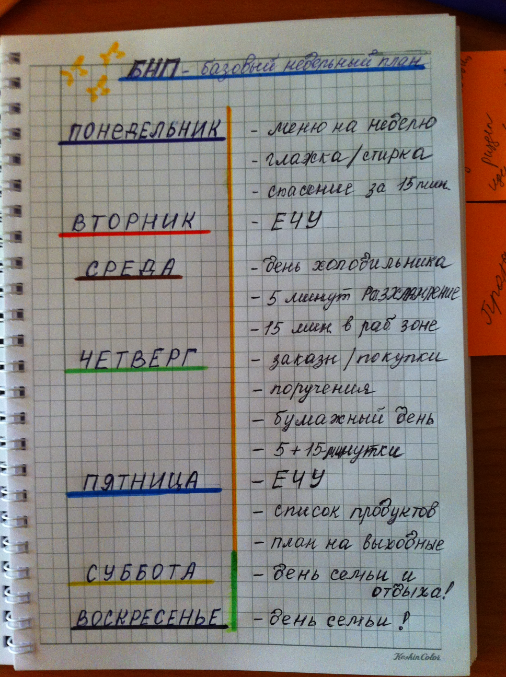 БНП - базовый недельный план
ПОНЕДЕЛЬНИК - меню на неделю
- глажка/стирка
- спасение за 15 мин
ВТОРНИК - ЕЧУ
СРЕДА - день холодильника
- 5 минут РАЗХЛАМЛЕНИЕ
- 15 мин в раб зоне
ЧЕТВЕРГ - заказы/покупки
- поручения
- бумажный день
- 5 + 15 минутки
ПЯТНИЦА - ЕЧУ
- список продуктов
- план на выходные
СУББОТА - день семьи и
отдыха!
ВОСКРЕСЕНЬЕ - день семьи!